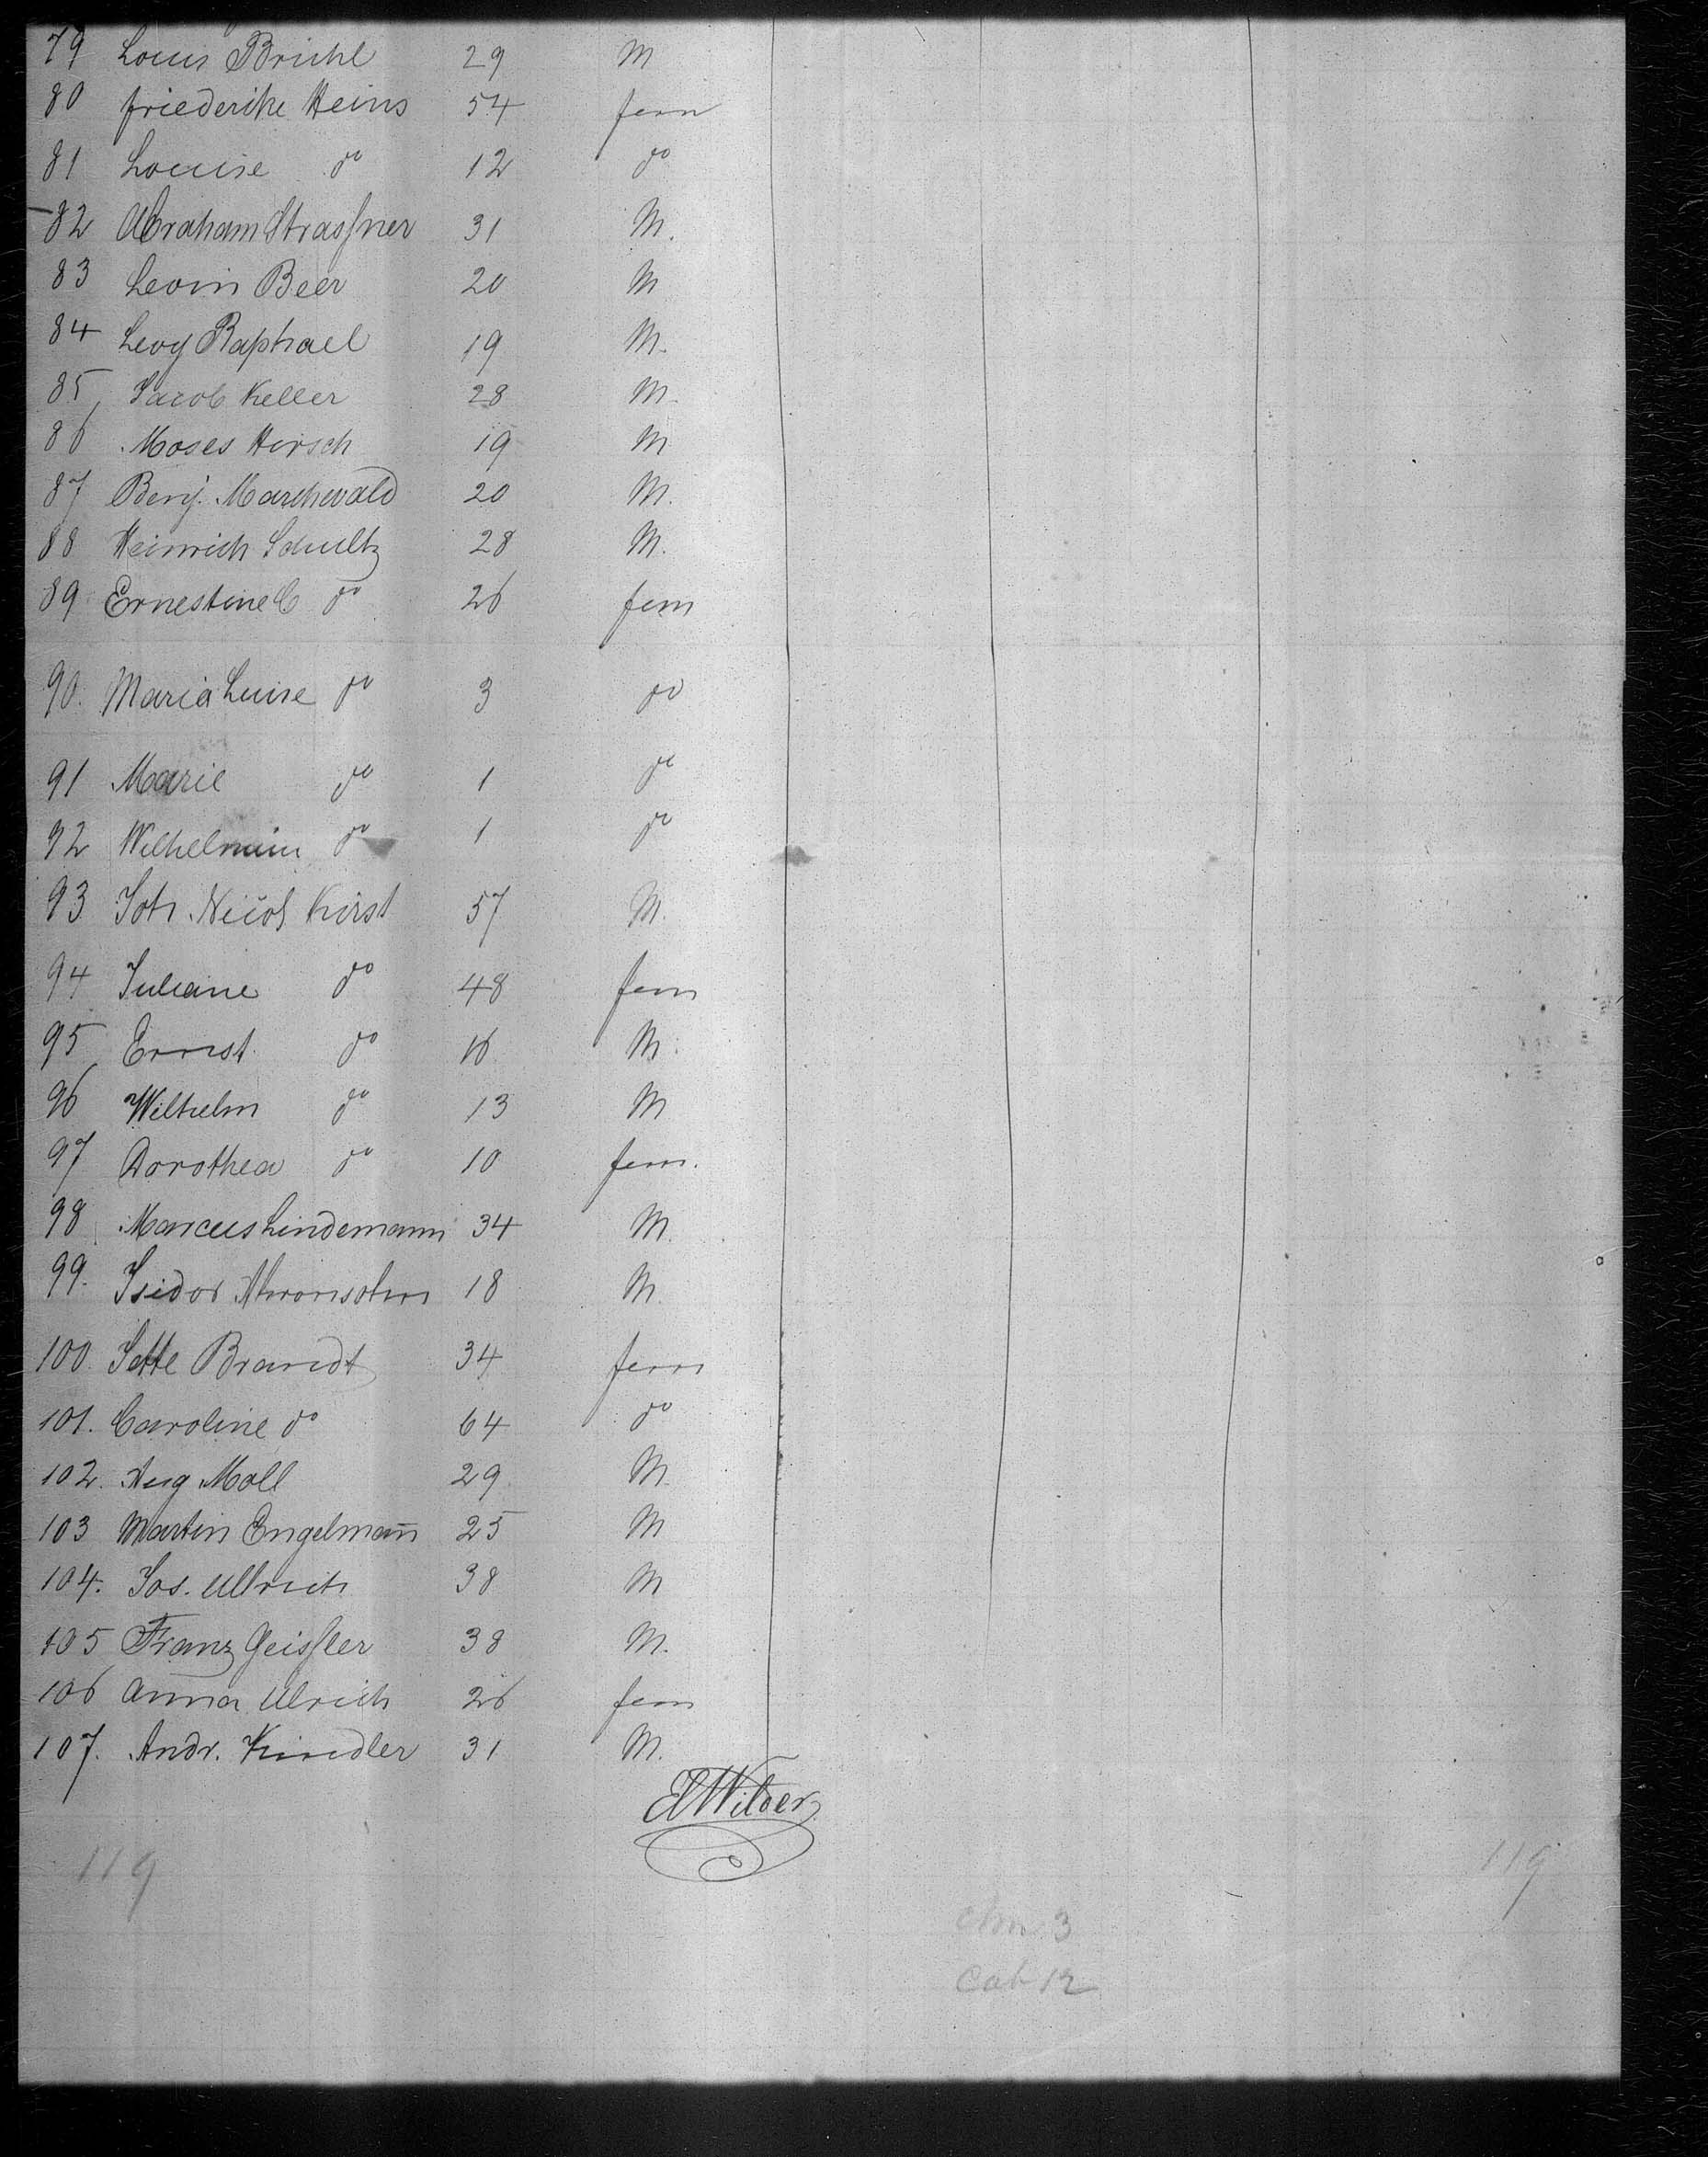 79 Louis Brühl 29 M
80 friederike Heins 54 fem
81 Louise do 12 do
82 Abraham Strassner 31 M.
83 Levin Beer 20 M
84 Levy Raphael 19 M.
85 Jacob Keller 28 M.
86 Moses Hirsch 19 M
87 Benj. Marchwald 20 M.
88 Heinrich Schultz 28 M.
89 Ernestine C do 26 fem
90. Maria Luise do 3 do
91 Marie do 1 do
92 do 1 do
93 Joh. Nicol Kirst 57 M.
94 Juliane do 48 fem
95 Ernst do 16 M.
96 Wilhelm do 13 M
97 Dorothea do 10 fem.
98 Marcus Lindemann 34 M.
99. Isidor Ahronsohn 18 M.
100. Jette Brandt 34 fem
101. Caroline do 64 do
102. Aug Moll 29 M.
103 Martin Engelmañ 25 M
104. Jos. Ullrich 38 M
105 Franz Geissler 38 M.
106 Anna Ulrich 26 fem
107. Andr. Kindler 31 M.
Wilder
119 119
3
Cab 12